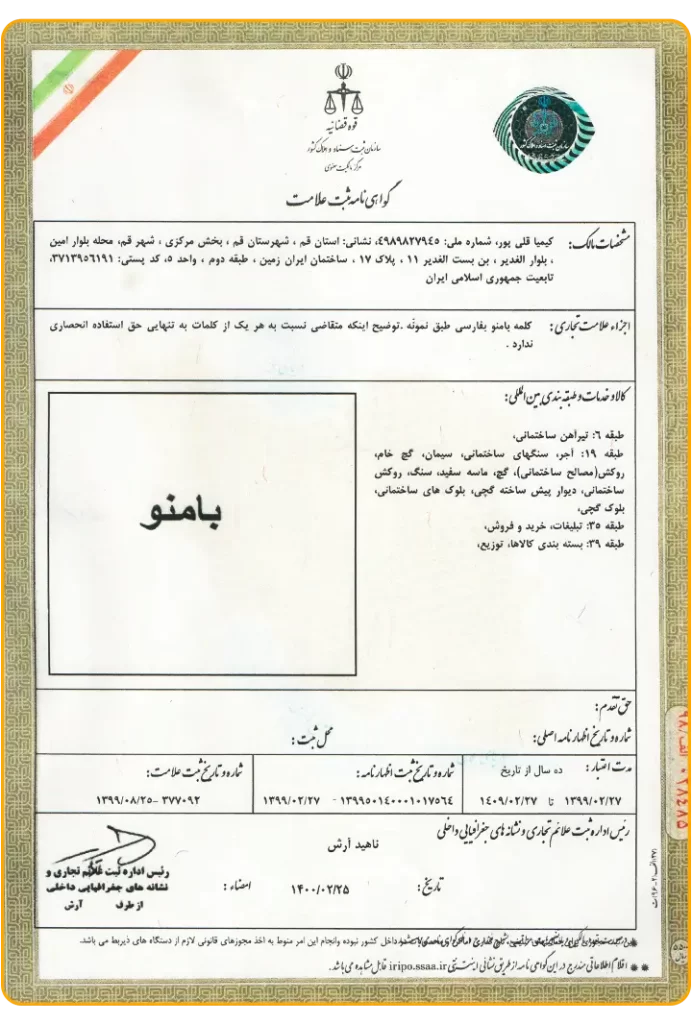 قوه قضائیه
سازمان ثبت اسناد و املاک کشور
مرکز مالکیت معنوی
گواهی نامه ثبت علامت
مشخصات مالک: کیمیا قلی پور، شماره ملی: ۴۹۸۹۸۲۷۹۴۵، نشانی: استان قم ، شهرستان قم ، بخش مرکزی ، شهر قم، محله بلوار امین
، بلوار الغدیر ، بن بست الغدیر ۱۱ ، پلاک ۱۷ ، ساختمان ایران زمین ، طبقه دوم ، واحد ۵، کد پستی: ۳۷۱۳۹۵۶۱۹۱،
تابعیت جمهوری اسلامی ایران
اجزاء علامت تجاری: کلمه بامنو بفارسی طبق نمونه .توضیح اینکه متقاضی نسبت به هر یک از کلمات به تنهایی حق استفاده انحصاری
ندارد .
کالا و خدمات و طبقه بندی بین المللی:
طبقه ۶: تیرآهن ساختمانی،
طبقه ۱۹: آجر، سنگهای ساختمانی، سیمان، گچ خام،
روکش(مصالح ساختمانی)، گچ، ماسه سفید، سنگ، روکش
ساختمانی، دیوار پیش ساخته گچی، بلوک های ساختمانی،
بلوک گچی،
طبقه ۳۵: تبلیغات، خرید و فروش،
طبقه ۳۹: بسته بندی کالاها، توزیع،
بامنو
حق تقدم:
شماره و تاریخ اظهارنامه اصلی: محل ثبت:
مدت اعتبار: ده سال از تاریخ
۱۳۹۹/۰۲/۲۷ تا ۱۴۰۹/۰۲/۲۷
شماره و تاریخ ثبت اظهارنامه:
۱۳۹۹۵۰۱۴۰۰۰۱۰۱۷۵۶۴ - ۱۳۹۹/۰۲/۲۷
شماره و تاریخ ثبت علامت:
۳۷۷۰۹۲ -۱۳۹۹/۰۸/۲۵
رئیس اداره ثبت علائم تجاری و نشانه های جغرافیایی داخلی
ناهید آرش
تاریخ: ۱۴۰۰/۰۲/۲۵ امضاء :
رئیس اداره ثبت علائم تجاری و
نشانه های جغرافیایی داخلی
از طرف آرش
داخل کشور نبوده وانجام این امر منوط به اخذ مجوزهای قانونی لازم از دستگاه های ذیربط می باشد.
** اقلام اطلاعاتی مندرج در این گواهی نامه از طریق نشانی اینترنتی iripo.ssaa.ir قابل مشاهده می باشد.